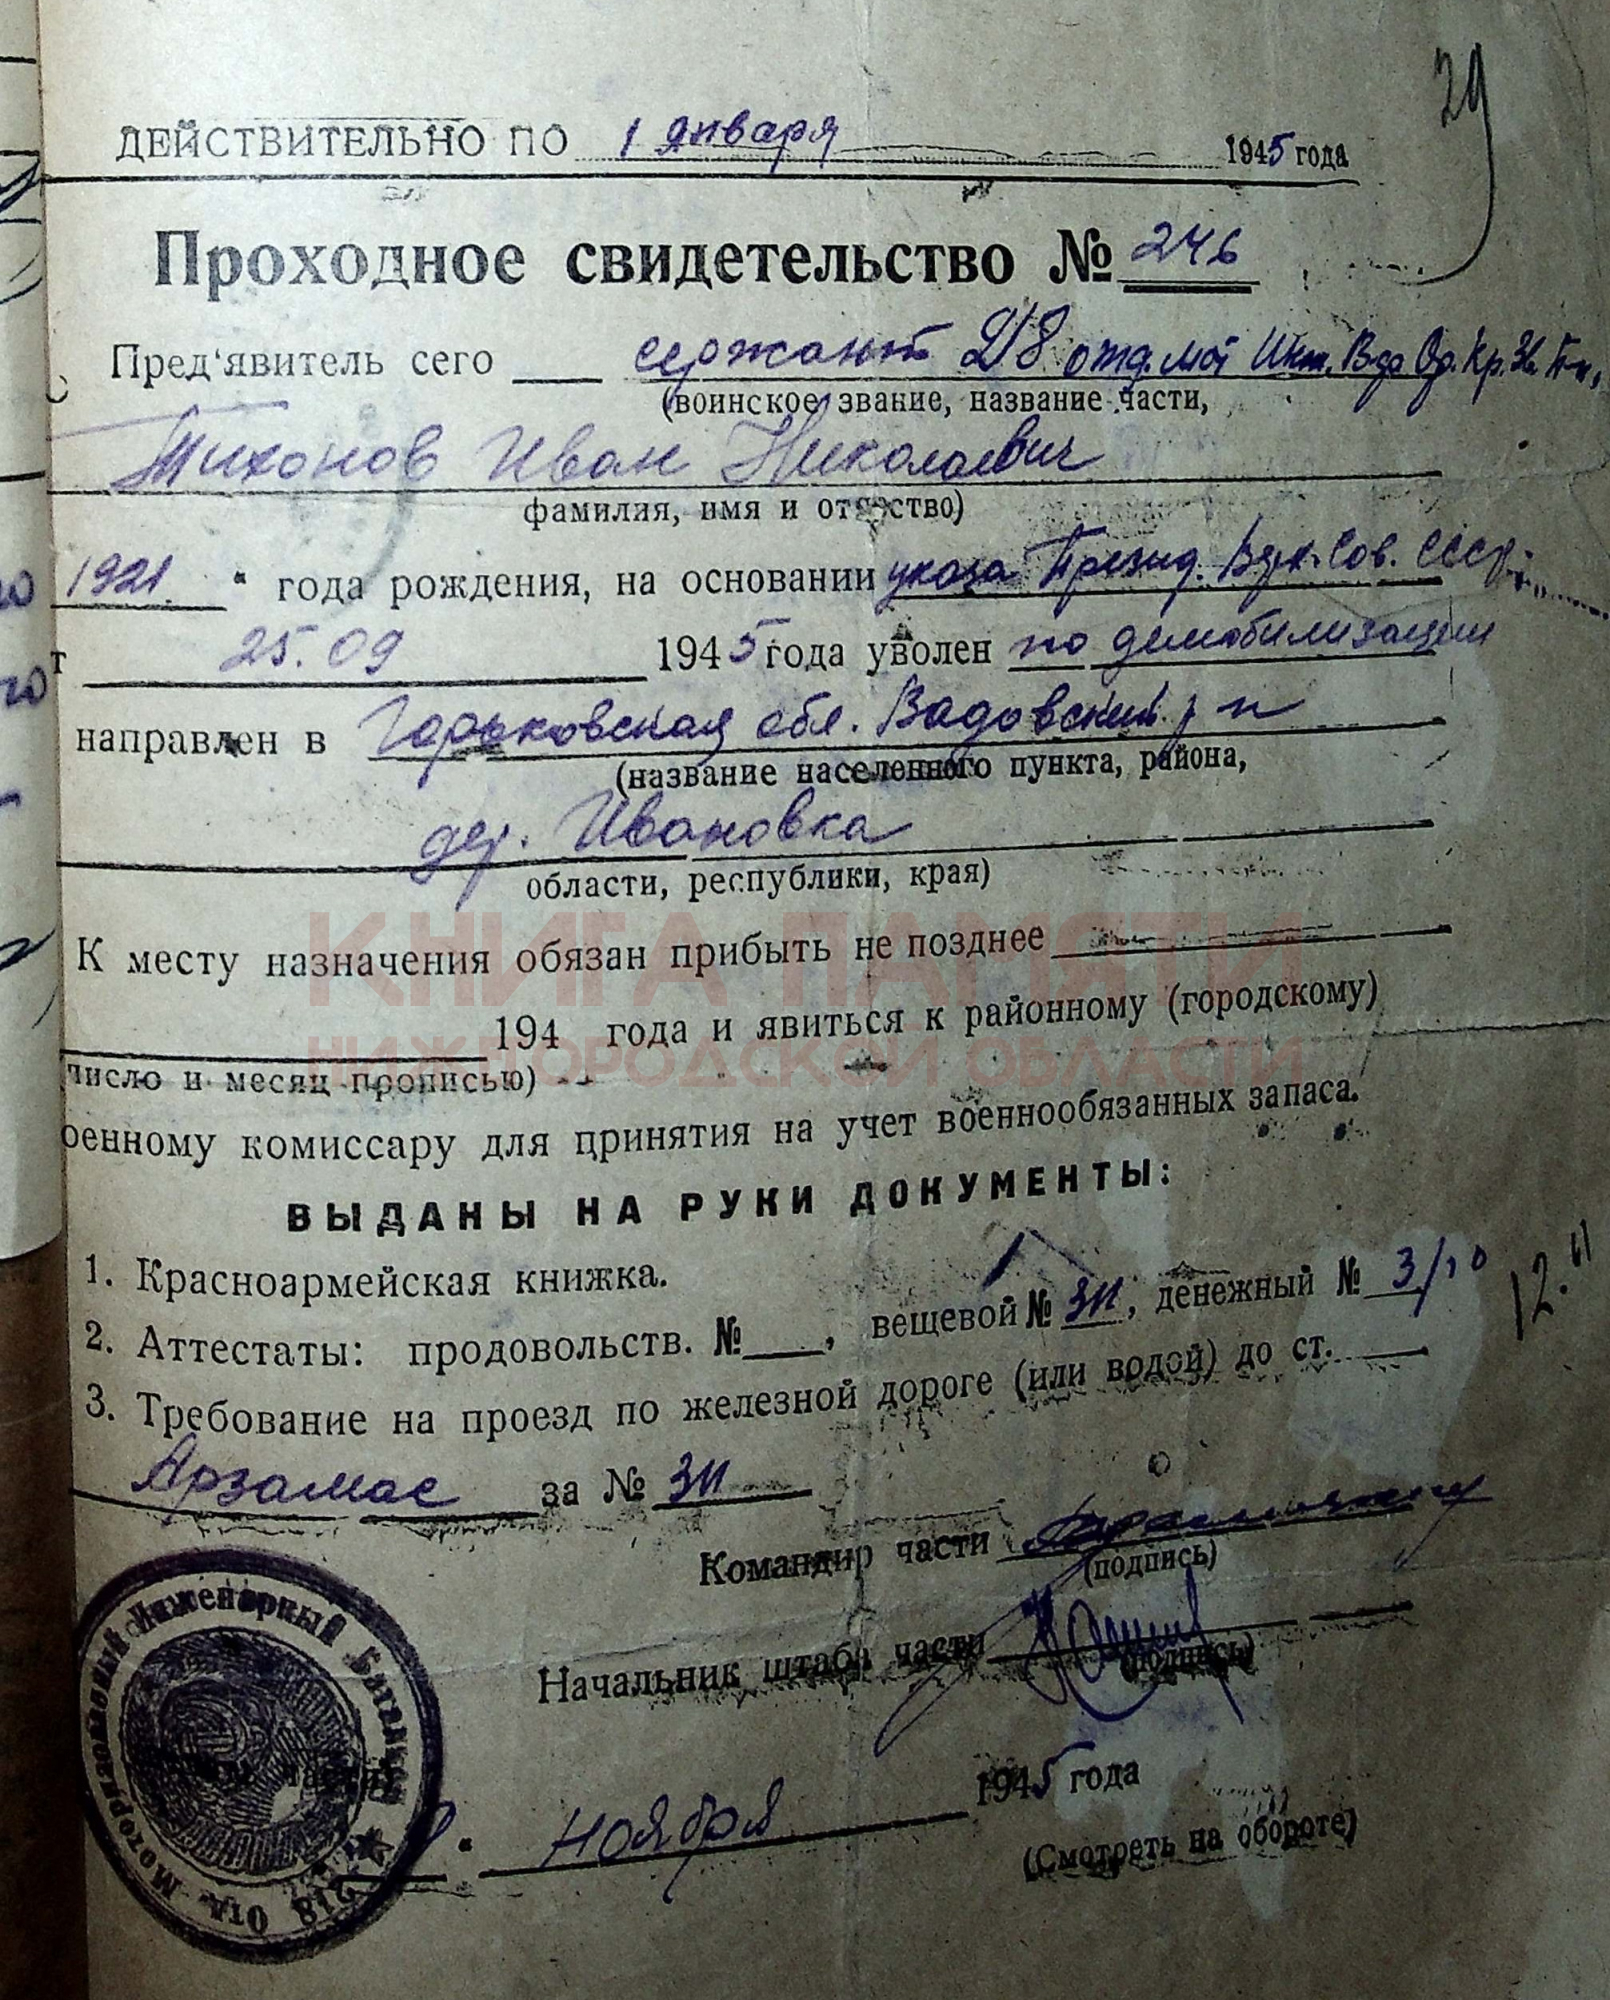 29
ДЕЙСТВИТЕЛЬНО ПО 1 января 1945 года
Проходное свидетельство № 246
Пред'явитель сего сержант 218 отд. мот Инж. Вдр Од. Кр. Зв. Б-н,
(воинское звание, название части,
Тихонов Иван Николаевич
фамилия, имя и отчество)
1921 " года рождения, на основании указа Презид. Верх. Сов. СССР
т 25.09 1945 года уволен по демобилизации
направлен в Горьковская обл. Вадовский р-н
(название населенного пункта, района,
дер. Ивановка
области, республики, края)
К месту назначения обязан прибыть не позднее
194 года и явиться к районному (городскому)
число и месяц прописью)
оенному комиссару для принятия на учет военнообязанных запаса.
ВЫДАНЫ НА РУКИ ДОКУМЕНТЫ:
1. Красноармейская книжка.
2. Аттестаты: продовольств. №, вещевой № ЗИ, денежный № 3/10
12.11
3. Требование на проезд по железной дороге (или водой) до ст.
Арзамас за № ЗИ
Командир части
(подпись)
Начальник штаба части
(подпись)
" ноября 1945 года
(Смотреть на обороте)
218 Отд. Моторизованный Инженерный Батальон
КНИГА ПАМЯТИ
НИЖЕГОРОДСКОЙ ОБЛАСТИ